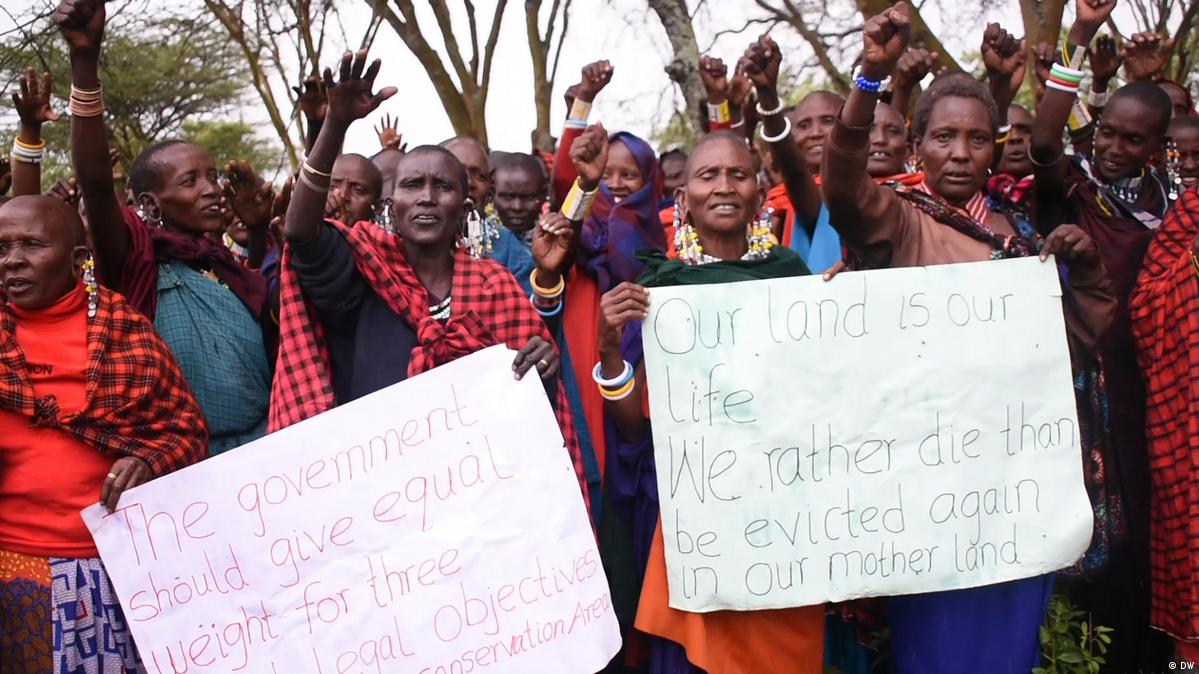 The government
should give equal
weight for three
Legal objectives
conservation Area
Our land is our
life
We rather die than
be evicted again
in our mother land
© DW